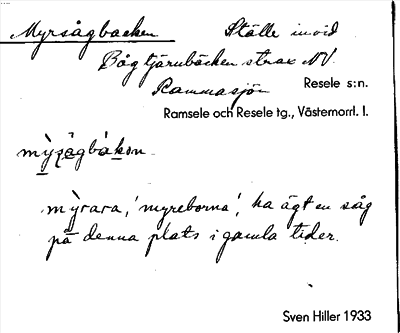 Myrsågbacken Ställe invid
Bågtjärnbäcken strax NV.
Rammasjön Resele s:n.
Ramsele och Resele tg., Västernorrl. l.
mỳrara, 'myreborna', ha ägt en såg
på denna plats i gamla tider.
Sven Hiller 1933